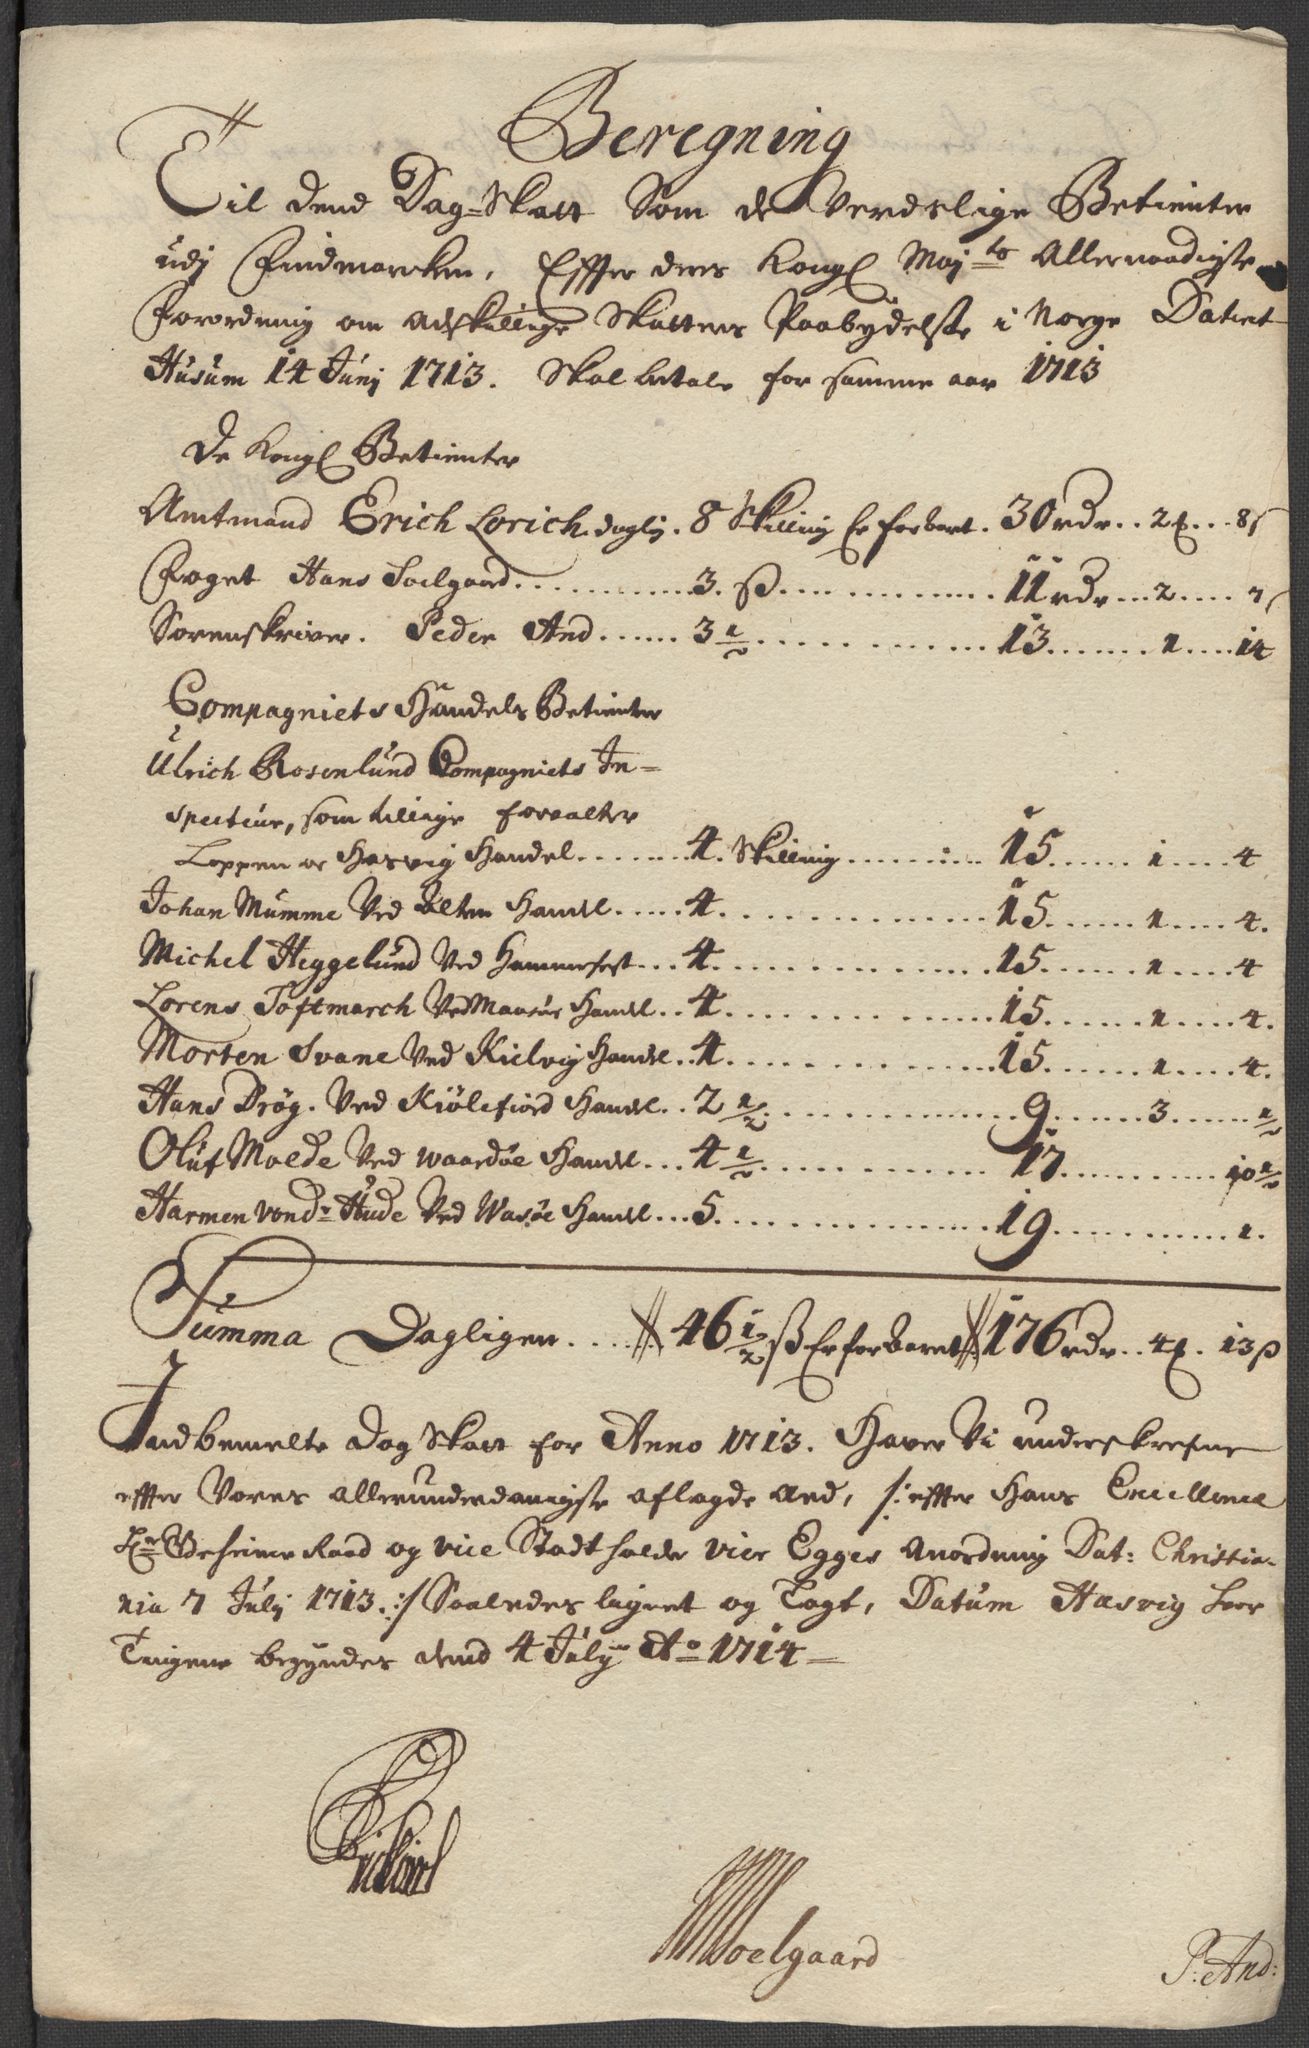 Beregning
Til dend Dag-Skatt Som de Verdslige Betiente
udj Findmarcken, Effter deris Kongl Maj:ts Allernaadigste
Forordning om adskillige Skatters Paabydelse i Norge Datert
Husum 14 Junj 1713. Skal betale for samme aar 1713
De Kongl Betiente
Amtmand Erich Lorich daglig. 8 Skilling Er forbert. 30 rdr.. 2 ... 8 s
Foget Hans Soelgaard ......... 3. ß ......... 11 rdr... 2 .... 7 s
Sorenskriver. Peder And ...... 3 1/2 ......... 13 ....... 1 .... 14
Compagniets Handels Betiente
Ulrich Rosenlund Compagniets In-
specteur, som tillige forvalter
Loppen oc Hasvig Handel ....... 4. Skilling ......... 15 ...... 1 .... 4
Johan Mumme Ved Alten Handl ..... 4 ......... 15 ...... 1 .... 4.
Michel Heggelund Ved Hammerfest ... 4 ......... 15 ...... 1 .... 4
Lorens Toftmarch Ved Maasøe Handl .. 4 ......... 15 ...... 1 .... 4.
Morten Svane Ved Kielvig Handl .. 4 ......... 15 ...... 1 .... 4.
Hans Drög. Ved Kiölefiord Handl .. 2 1/2 ......... 9 ...... 3 ...... 1/2
Oluf Molde Ved Waardöe Handl ... 4 1/2 ......... 17 ......... 10 1/2
Harmen vond:r Hude Ved Wasöe Handl ... 5 ......... 19 ......... 1.
Summa Dagligen .... 46 1/2 ß Er forbaret 176 rdr.. 4 . 13 ß
Indbemelte Dag Skatt for Anno 1713. Haver Vi underskrefne
effter Vores allerunderdanigste aflagde Eed, /: effter Hans Excellence
Hr Geheime Raad og vice Stadtholder Vice Egges Anordning Dat: Christia-
nia 7 Julij 1713. :/ Saaledes lignet og Tagt, Datum Hasvig
Tingene begyndes dend 4 Julij Ao 1714
Soelgaard
P: And: